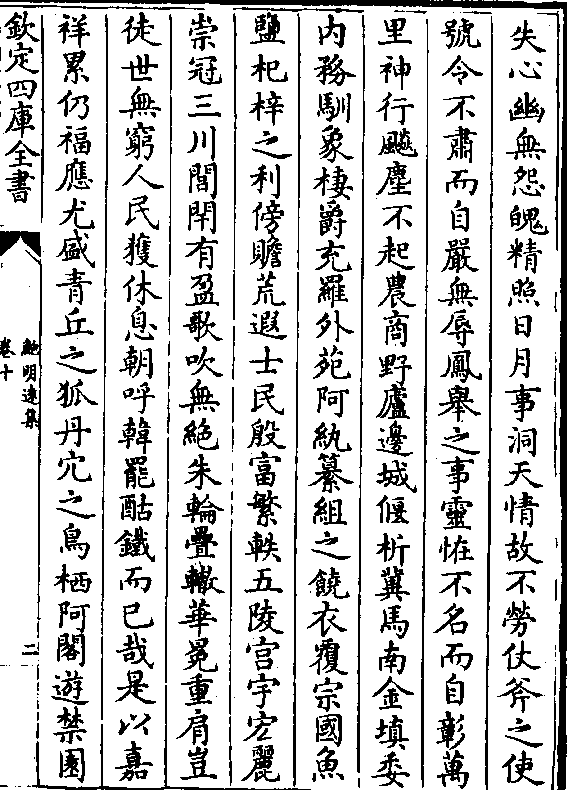 失心幽無怨魄精照日月事洞天情故不勞仗斧之使
號令不肅而自嚴無辱鳳舉之事靈恠不名而自彰萬
里神行飈塵不起農商野廬邊城偃柝冀馬南金填委
内務馴象棲爵充羅外苑阿紈纂組之饒衣覆宗國魚
鹽杞梓之利傍贍荒遐士民殷富繁軼五陵宫宇宏麗
崇冠三川閭閈有盈歌吹無絶朱輪疊轍華冕重肩豈
徒世無窮人民獲休息朝呼韓罷酤鐵而已哉是以嘉
祥累仍福應尤盛青丘之狐丹穴之鳥栖阿閣遊禁園
欽定四庫全書
鮑明逺集
卷十
二